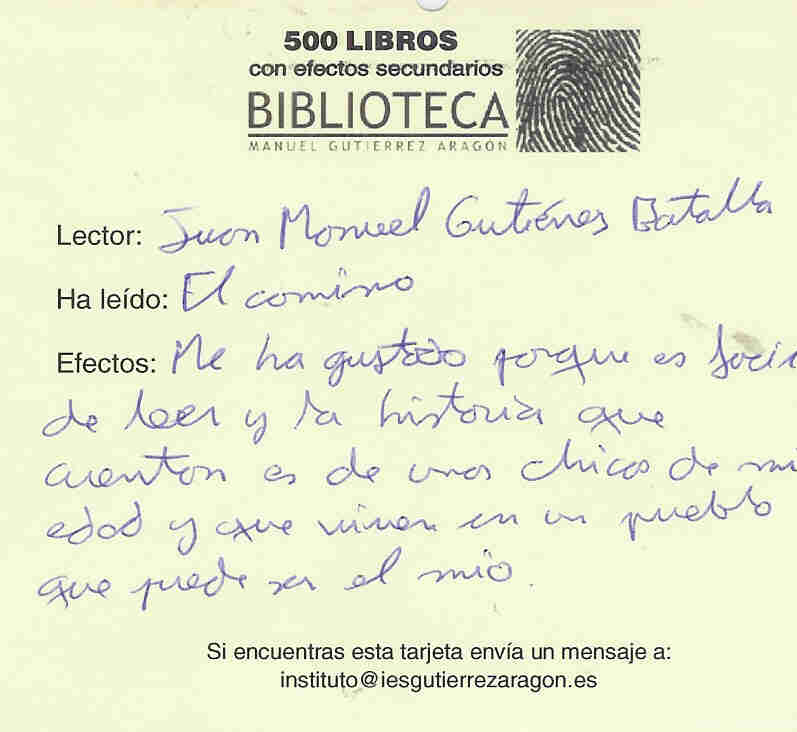 500 LIBROS
con efectos secundarios
BIBLIOTECA
MANUEL GUTIERREZ ARAGÓN
Lector: Juan Manuel Gutiérres Batalla
Ha leído: El camino
Efectos: Me ha gustado porque es facil
de leer y la historia que
cuentan es de unos chicos de mi
edad y que viven en un pueblo
que puede ser el mio.
Si encuentras esta tarjeta envía un mensaje a:
instituto@iesgutierrezaragon.es